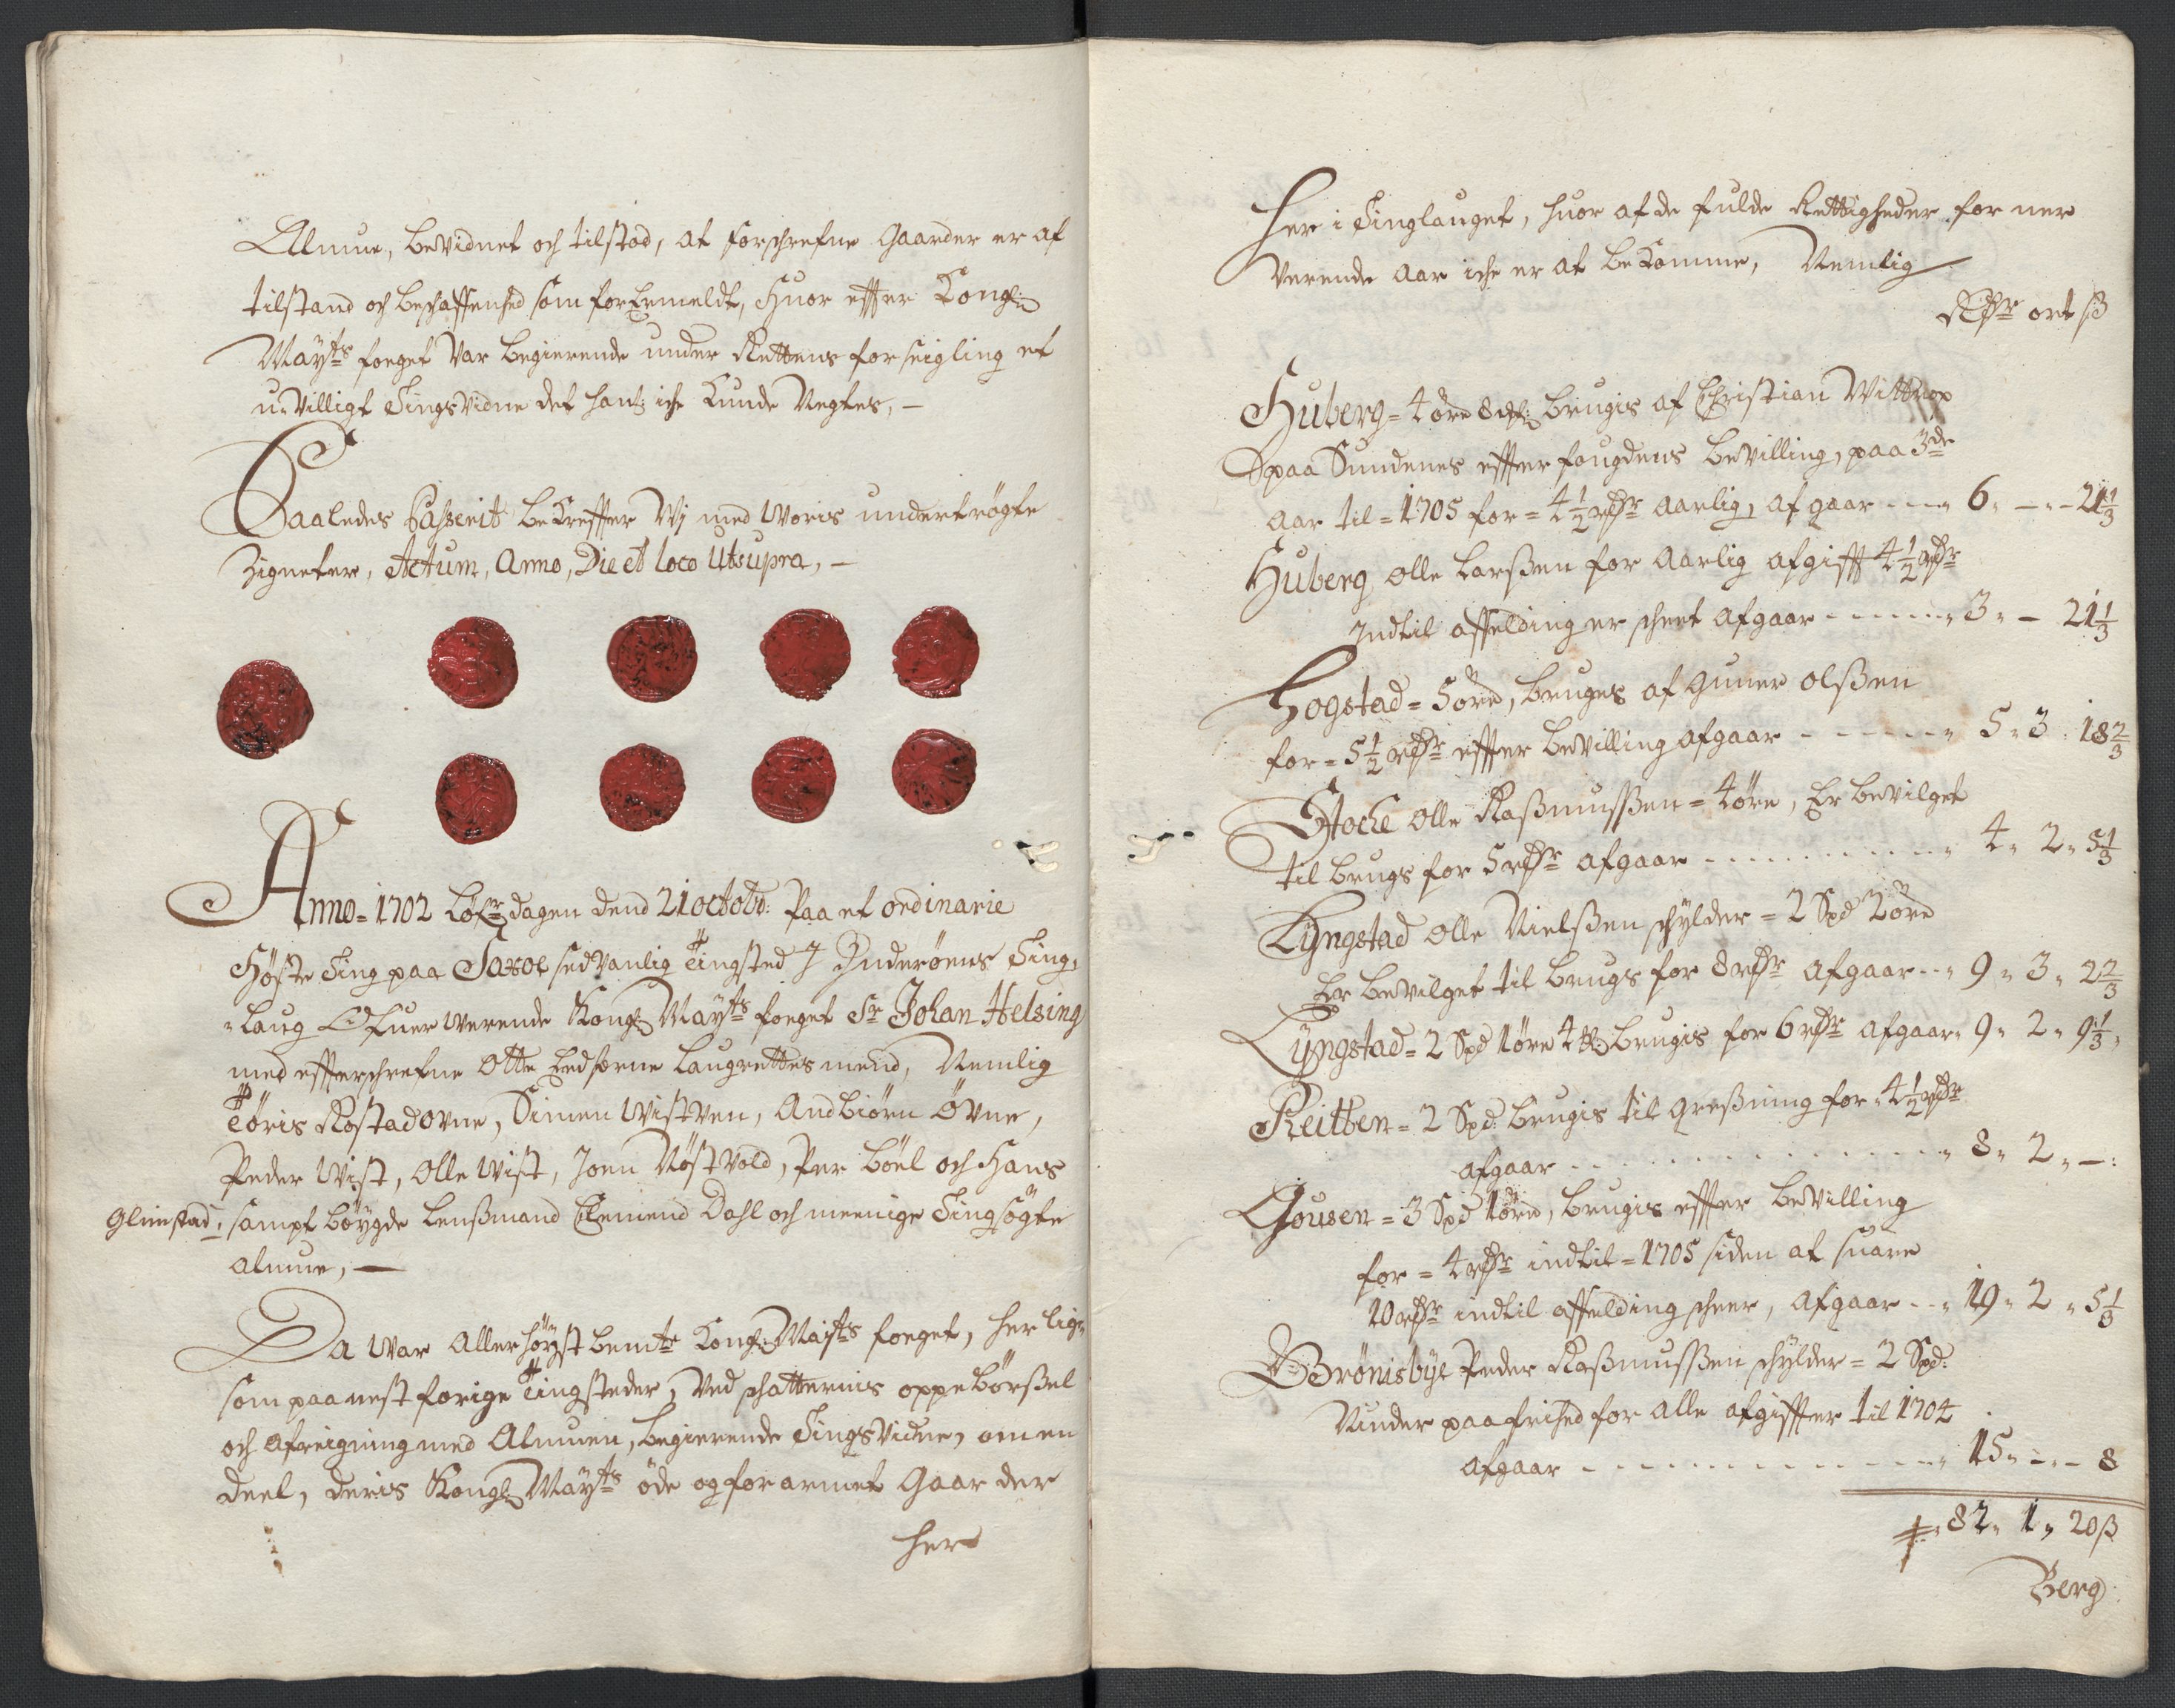 Almue, bevidnet och tilstod, at forschrefne Gaarder er af
tilstand och beschaffenhed som forbemeldt, Huor effter Kongl:
Mayts foeget Var begierende under Rettens forseigling et
u-Villigt TingsVidne det hans iche Kunde Negtes, -
Saaledes Passerit beKreffter Wj med Woris undertrögte
Zigneter, Actum, Anno, Die et loco Utsupra, -
Anno = 1702 Löfr dagen dend 21 octobr: Paa et ordinarie
Höste Ting paa Saxoe sedvanlig Tingsted J Ynderöens Ting,
laug Ofuer werende Kongl Mayts foeget Sr Johan Helsing
med effterschrefne Otte Eedsorne Laugrettes mend, Nemlig
Töris Rostadovne, Simen Wistven, Andbiörn Övne,
Peder Wist, Olle Wist, Joen Nöstvold, Per Böel och Hans
Glimstad, sampt böygde Lensmand Clemend Dahl och meenige Tingsögte
almue, —
Da War Allerhöyst bemte Kongl Mayts foeget, her lig-
som paa nest forige Tingsteder, Ved schatternis oppebörsel
och afreigning med Almuen, begierende TingsVidne, om en
deel, deris Kongl Mayts öde og forarmet Gaarder
her
Her i Tinglauget, huor af de fulde Rettigheder for ner
verende Aar iche er at beKomme, Nemlig
Rdr ort ß
Huberg = 1 öre 8 brugis af Christian Wittrop
paa Sundenes effter fougdens bevilling, paa 3de
Aar til = 1705 for = 4½ rdr Aarlig, af gaar - - - 6 " — - 21⅓
Huberg Olle Larßen for Aarlig afgifft 4½ rdr
Jndtil affelding er scheet afgaar - - - - - 3 " - 21⅓
Hogstad = 5 öre, bruges af Guner Olßen
for = 5½ rdr effter bevilling afgaar - - - - - 5 " 3 " 18⅔
Stoche Olle Raßmusßen = 1 öre, Er bevilget
til brugs for 5 rdr afgaar - - - - - - 4 " 2 " 5⅓
Lyngstad Olle Nielßen schylder = 2 Spd 2 öre
Er bevilget til brugs for 8 rdr afgaar - - 9 " 3 " 2⅔
Lyngstad = 2 Spd 1 öre 4 brugis for 6 rdr afgaar " 9 " 2 " 9⅓
Reitten = 2 Spd: brugis til Greßning for 4½ rdr
afgaar - - - - - - - - 8 " 2 " —
Gousen = 3 Spd 1 öre, brugis effter bevilling
for = 4 rdr indtil = 1705 siden at suare
10 rdr indtil affelding scheer, afgaar - - 19 " 2 " 5⅓
Brönisbye Peder Raßmusßen schylder = 2 Spd:
Vunder paa frihed for alle afgiffter til 1704
afgaar - - - - - - - - 15 " - " - 8
82 " 1 " 20 ß
Berg